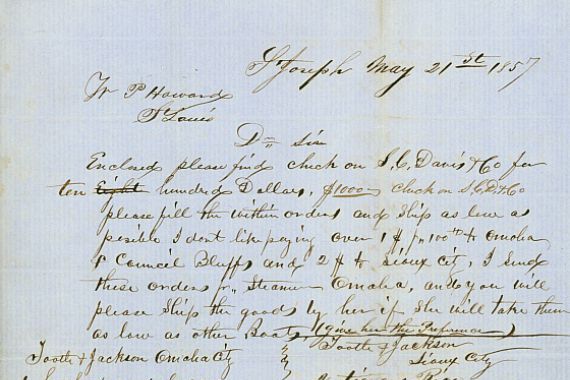 St Joseph May 21st 1857
W P Howard
St Louis
Dr Sir
Enclosed please find check on S. C. Davis & Co for
ten Eight hundred Dollars, $1000 check on S. C. D. & Co
please fill the within orders and Ship as low as
posible I dont like paying over 1 $ pr 100 lb to Omaha
& Council Bluffs and 2 $ to Sioux City, I send
these orders pr Steamer Omaha, and you will
please Ship the goods by her if she will take them
as low as other Boats, (give her the Preference)
Tootle & Jackson Omaha City
Tootle & Jackson
Sioux City